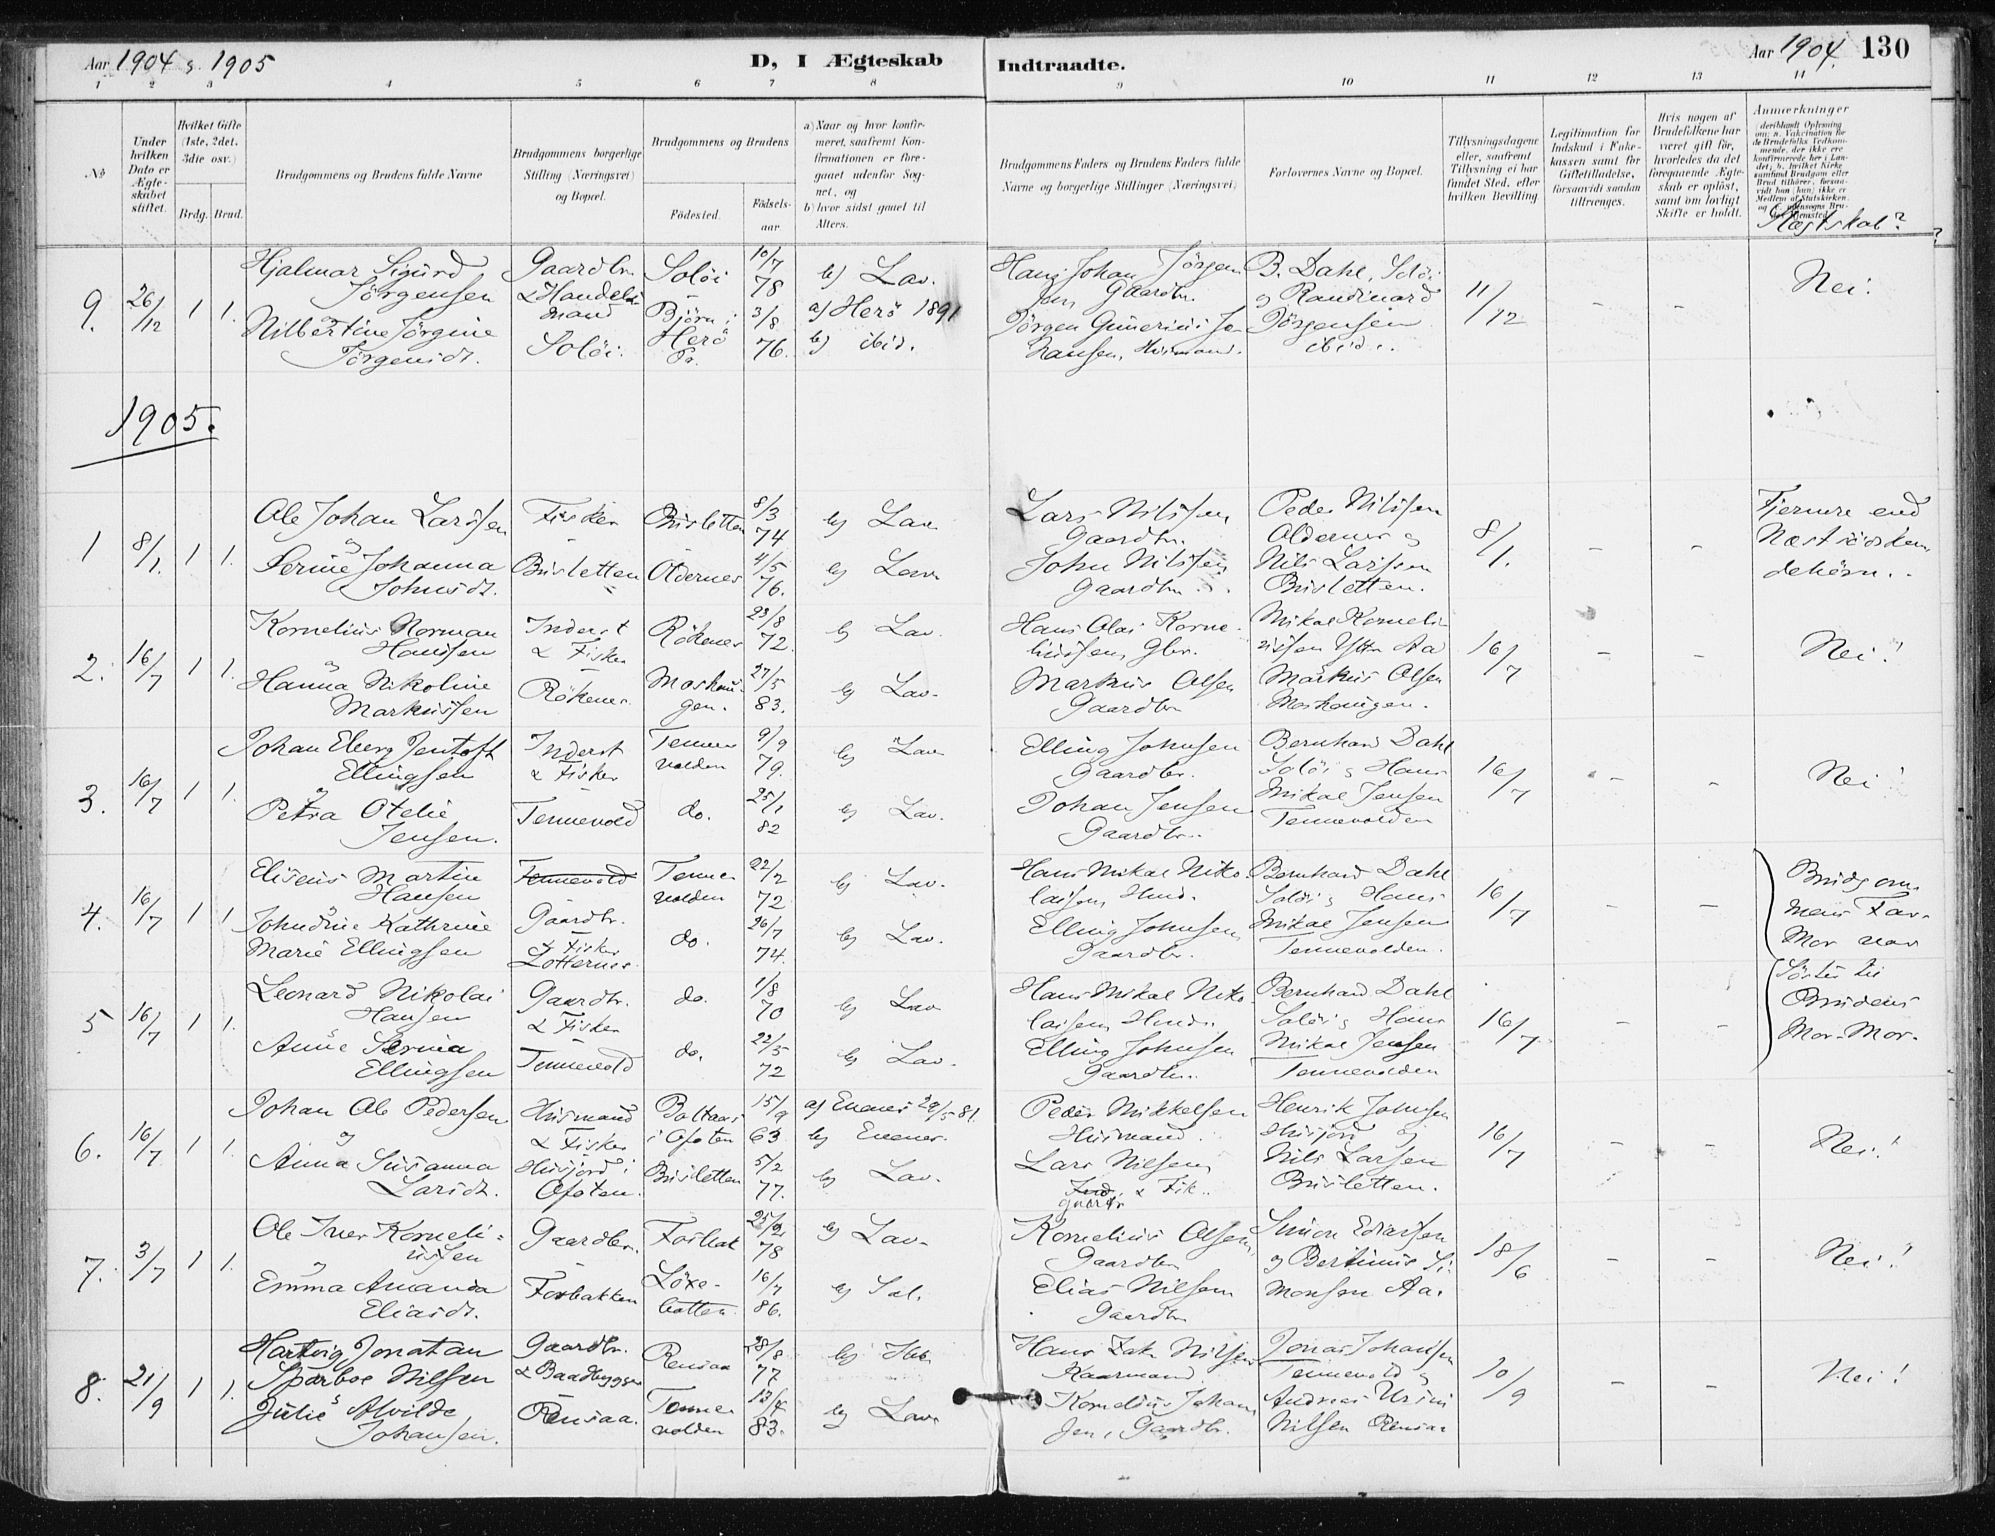 Aar 1904 g. 1905
D, I Ægteskab Indtraadte.
Aar 1904. 130
1 2 3 4 5 6 7 8 9 10 11 12 13 14
No
Under hvilken Dato er Ægteskabet stiftet.
Hvilket Gifte (1ste, 2det, 3die osv.)
Brdg. Brud.
Brudgommens og Brudens fulde Navne
Brudgommens borgerlige Stilling (Næringsvei) og Bopæl.
Brudgommens og Brudens
Fødested.
Fødselsaar.
a) Naar og hvor konfirmeret, saafremt Konfirmationen er foregaaet udenfor Sognet, og
b) hvor sidst gaaet til Alters.
Brudgommens Faders og Brudens Faders fulde Navne og borgerlige Stillinger (Næringsvei)
Forlovernes Navne og Bopæl.
Tillysningsdagene eller, saafremt Tillysning ei har fundet Sted, efter hvilken Bevilling.
Legitimation for Indskud i Enkekassen samt for Giftetilladelse, forsaavidt saadan tiltrænges.
Hvis nogen af Brudefolkene har været gift før, hvorledes da det foregaaende Ægteskab er opløst, samt om lovligt Skifte er holdt.
Anmærkninger
Slegtskab?
9. 26/12 1 1.
Hjalmar Sigurd
Jörgensen
og
Nilbertine Jörgine
Jörgensdt.
Gaardbr.
& Handels-
mand
Solöi.
Solöi
10/7 78
Björn i
Herö
Pr.
3/8 76.
b) Lav.
a) Herö 1891
b) ibid.
Hans Johan Jörgen-
sen Gaardbr.
Jörgen Gunerius Jo-
hansen, Husmand.
B. Dahl, Solöi
og Randinard
Jörgensen
ibid.
11/12 - -
Nei.
1905.
1 8/1. 1 1.
Ole Johan Larssen
og
Serine Johanna
Johnsdt.
Fisker
Brusletten
Brusletten
8/3 74
Oldernes
4/5 76.
b) Lav
b) Lav
Lars Nilssen
Gaardbr.
John Nilssen
Gaardbr.
Peder Nilssen
Oldernes og
Nils Larssen
Brusletten.
8/1. - -
Fjernere end
Næstsödsken-
debörn.
2. 16/7 1 1.
Kornelius Norman
Hanssen
og
Hanna Nikoline
Markussen
Inderst
& Fisker
Rökenes
Rökenes
23/8 72.
Moshau-
gen.
27/5 83.
b) Lav.
b) Lav.
Hans Olai Korne-
liussen, Gbr.
Markus Olsen
Gaardbr
Mikal Korneli-
ussen Yttr Aa
Markus Olsen
Moshaugen.
16/7 - -
Nei!
3. 16/7 1 1.
Johan Eberg Jentoft
Ellingsen
og
Petra Otelie
Jensen.
Inderst
& Fisker
Tennevold
Tenne-
volden
9/9 79.
do.
25/1 82
b) Lav
b) Lav.
Elling Johnsen
Gaardbr.
Johan Jensen
Gaardbr.
Bernhard Dahl
Solöi og Hans
Mikal Jensen
Tennevolden
16/7 - -
Nei!
4. 16/7 1 1
Eliseus Martin
Hansen
og
Johndine Kathrine
Marie Ellingsen
Tennevold
Gaardbr.
& Fisker
Lotternes
Tenne-
volden
22/2 72
do.
26/7 74.
b) Lav.
b) Lav.
Hans Mikal Niko-
laisen, Husd.
Elling Johnsen
Gaardbr.
Bernhard Dahl
Solöi og Hans
Mikal Jensen
Tennevolden.
16/7 - -
Brudgom-
mens Far-
Mor var
5 16/7 1 1.
Leonard Nikolai
Hansen
og
Anne Serina
Ellingsen
Gaardbr.
& Fisker
Tennevold
do.
1/8 70
do.
22/5 72
b) Lav
b) Lav.
Hans Mikal Niko-
laisen, Husd.
Elling Johnsen
Gaardbr.
Bernhard Dahl
Solöi og Hans
Mikal Jensen
Tennevolden
16/7 - -
Söster til
Brudens
Mor-Mor.
6. 16/7 1 1.
Johan Ole Pedersen
og
Anna Susanna
Larsdt.
Husmand
& Fisker
Husjord i
Ofoten.
i Ofoten
15/9 63
Brusletten
5/2 77.
a) Evenes 29/5 81.
b) Evenes.
b) Lav.
Peder Mikkelsen
Husmand.
Lars Nilsen
Ind. & Fisk.
Gaardbr
Henrik Johnsen
Husjord og
Nils Larsen
Brusletten.
16/7 - -
Nei!
7. 3/7 1 1.
Ole Iver Korneli-
ussen
og
Emma Amanda
Eliasdt.
Gaardbr.
Forbakken
Forbak
25/2 78
Löxe-
botten
16/7 86.
b) Lav.
b) Sal.
Kornelius Olsen
Gaardbr
Elias Nilsen
Gaardbr
Simon Edvardsen
og Bertinus Si-
monsen Aa.
18/6 - -
Nei!
8. 21/9 1 1.
Hartvig Jonatan
Sparboe Nilsen
og
Julie Alvilde
Johansen.
Gaardbr.
& Baadbygger
Rensaa.
Rensaa
28/8 77
Tenne-
volden
13/4 83.
b) Ibb
b) Lav.
Hans Zak. Nilsen
Kaarmand.
Kornelius Johan-
sen, Gaardbr.
Jonas Johansen
Tennevold og
Andreas Ursin
Nilsen Rensaa
10/9 - -
Nei!